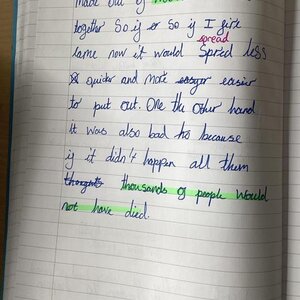 made out of
together So if or So if I fire
spread
came now it would Spred less
quicker and more easyer easier
to put out. One the other hand
it was also bad ho because
if it didn't happen all them
thoughts thousands of people would
not have died.